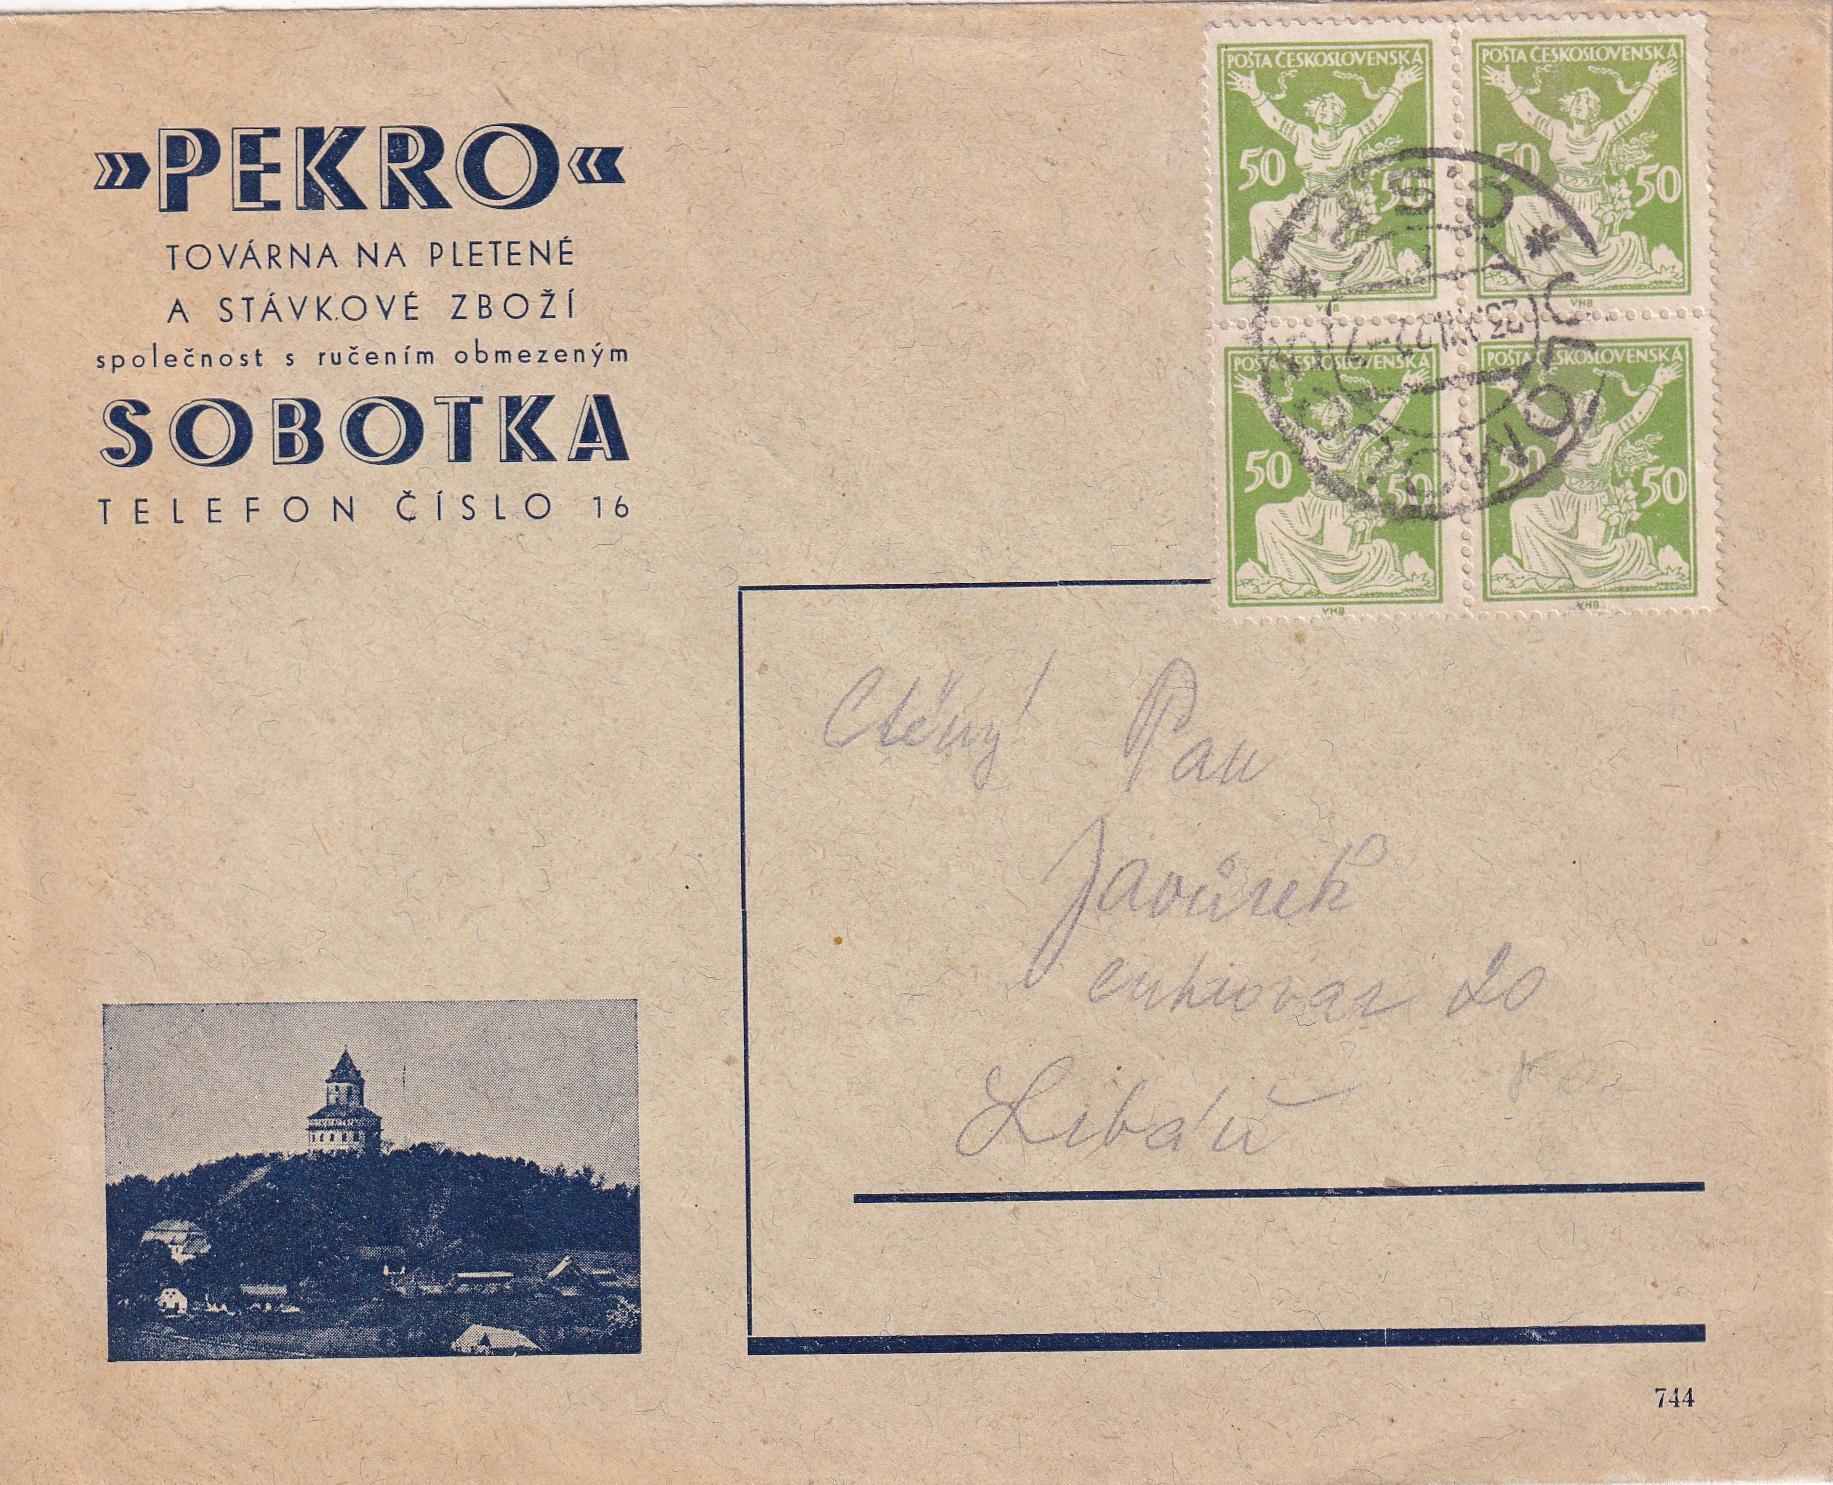 »PEKRO«
TOVÁRNA NA PLETENÉ
A STÁVKOVÉ ZBOŽÍ
společnost s ručením obmezeným
SOBOTKA
TELEFON ČÍSLO 16
POŠTA ČESKOSLOVENSKÁ
50 50
VHB
POŠTA ČESKOSLOVENSKÁ
50 50
VHB
POŠTA ČESKOSLOVENSKÁ
50 50
VHB
POŠTA ČESKOSLOVENSKÁ
50 50
VHB
OLOMOUC
Č.S.
Ctěný Pan
Javůrek
cukrovar 20
Libáň
744